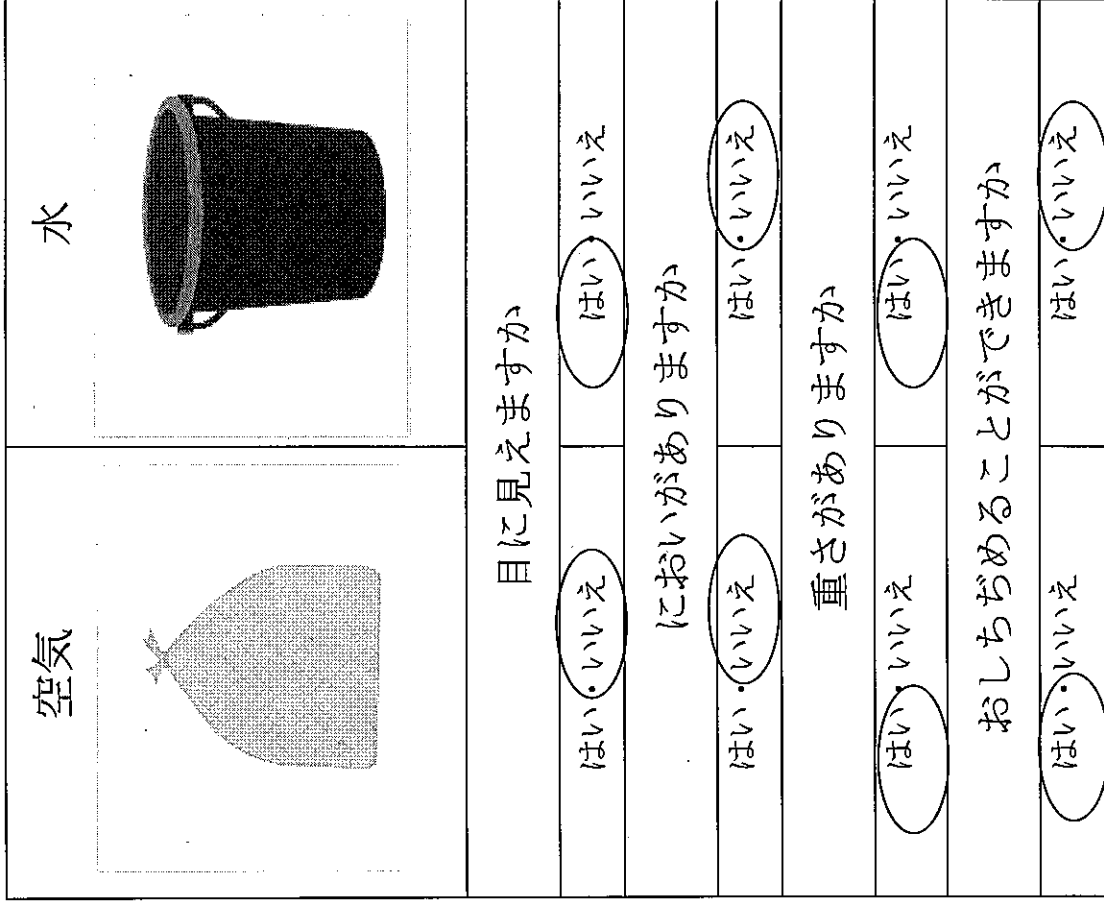 空気 水
目に見えますか
はい・いいえ はい・いいえ
においがありますか
はい・いいえ はい・いいえ
重さがありますか
はい・いいえ はい・いいえ
おしちぢめることができますか
はい・いいえ はい・いいえ